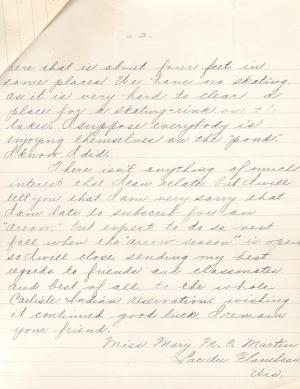 - 3 -
here that is about four feet in
some places. We have no skating.
as it is very hard to clear a
place for a skating-rink on the
lakes. I suppose everybody is
enjoying themselves on the "pond."
I know I did.
There isn't anything of much
interest that I can relate, but I will
tell you that I am very sorry that
I am late to subscrib for an
"arrow." but expect to do so next
fall when the "arrow-season" is open
so I will close, sending my best
regards to friends and classmates
and best of all to the whole
Carlisle Indian reservation, wishing
it continued good luck, I remain
your friend.
Miss Mary M. C. Martin
Lac du Flambeau
Wis.